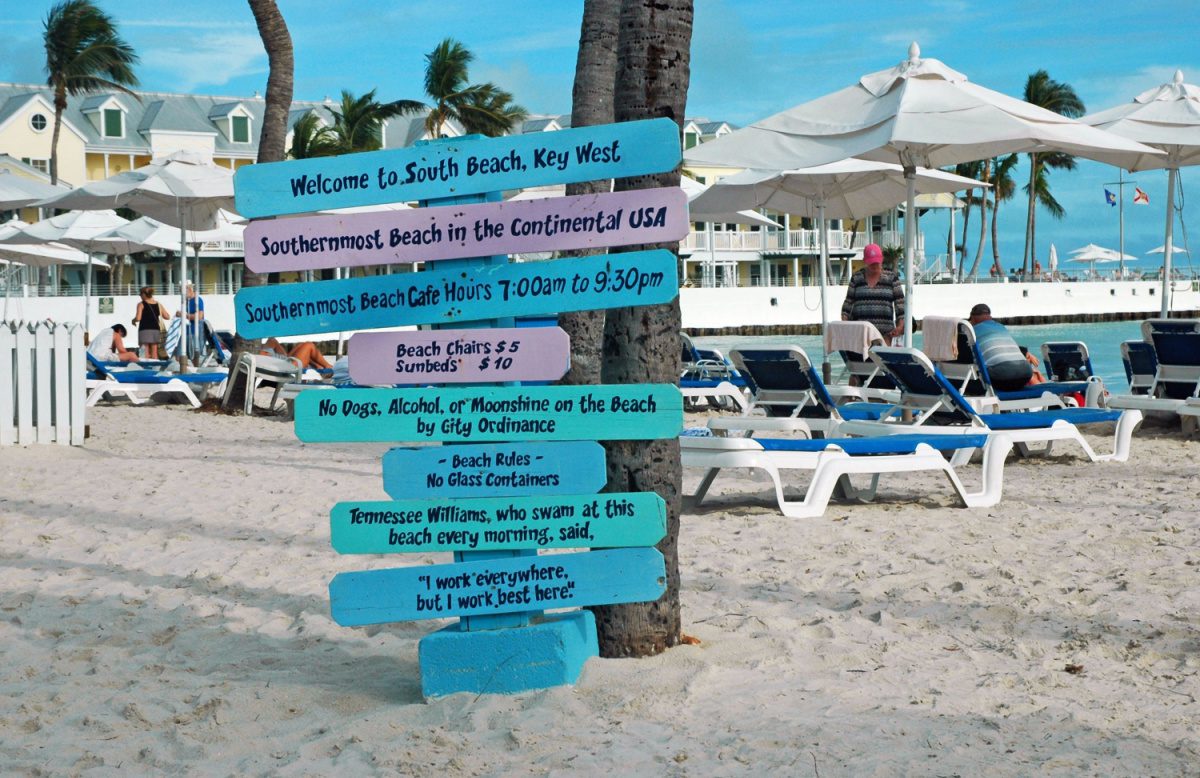 Welcome to South Beach, Key West
Southernmost Beach in the Continental USA
Southernmost Beach Cafe Hours 7:00am to 9:30pm
Beach Chairs $5
Sunbeds $10
No Dogs, Alcohol, or Moonshine on the Beach
by City Ordinance
- Beach Rules -
No Glass Containers
Tennessee Williams, who swam at this
beach every morning, said,
"I work everywhere,
but I work best here."